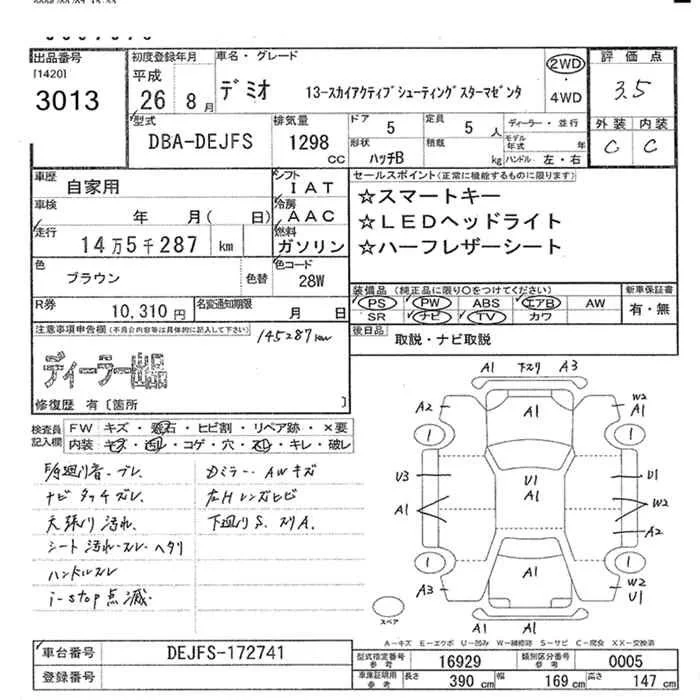 出品番号
[1420]
3013
初度登録年月
平成
26 8月
車名・グレード
デミオ 13-スカイアクティブシューティングスターマゼンタ
2WD
・
4WD
評価点
3.5
外装 内装
C C
型式
DBA-DEJFS
排気量
1298
cc
ドア 5
定員 5 人
ディーラー・並行
形状 ハッチB
積載 kg
モデル年式 年
ハンドル 左・右
車歴 自家用
シフト IAT
車検 年 月( 日)
冷房 AAC
走行 14万5千287 km
燃料 ガソリン
色 ブラウン 色替
色コード 28W
R券 10,310円
名変通知期限 月 日
セールスポイント(正常に機能するものに限ります)
☆スマートキー
☆LEDヘッドライト
☆ハーフレザーシート
装備品(純正品に限り○をつけてください)
新車保証書
PS PW ABS エアB AW
SR ナビ TV カワ
有・無
後日品 取説・ナビ取説
注意事項申告欄(不具合内容等は具体的に記入して下さい)
145287km
ディーラー出品
修復歴 有〔箇所 〕
検査員記入欄
FW キズ・飛石・ヒビ割・リペア跡・×要
内装 キズ・汚レ・コゲ・穴・スレ・キレ・破レ
ナビ タッチズレ
天張リ汚れ
シート 汚れ・スレ・ヘタリ
ハンドルスレ
i-stop点滅
Dミラー・AWキズ
左Hレンズヒビ
下廻りS.スリA.
A1 下スリ A3
A2 A1 W2 A1
1 1
U3 U1 A1 U1
A1 W2
A2
1 1
A3 A1 W2 U1
A1 A1
スペア
A-キズ E-エクボ U-凹み W-補修跡 S-サビ C-腐食 XX-交換済
車台番号 DEJFS-172741
登録番号
型式指定番号 参考 16929
類別区分番号 参考 0005
車庫証明用 参考 長さ 390 cm 幅 169 cm 高さ 147 cm